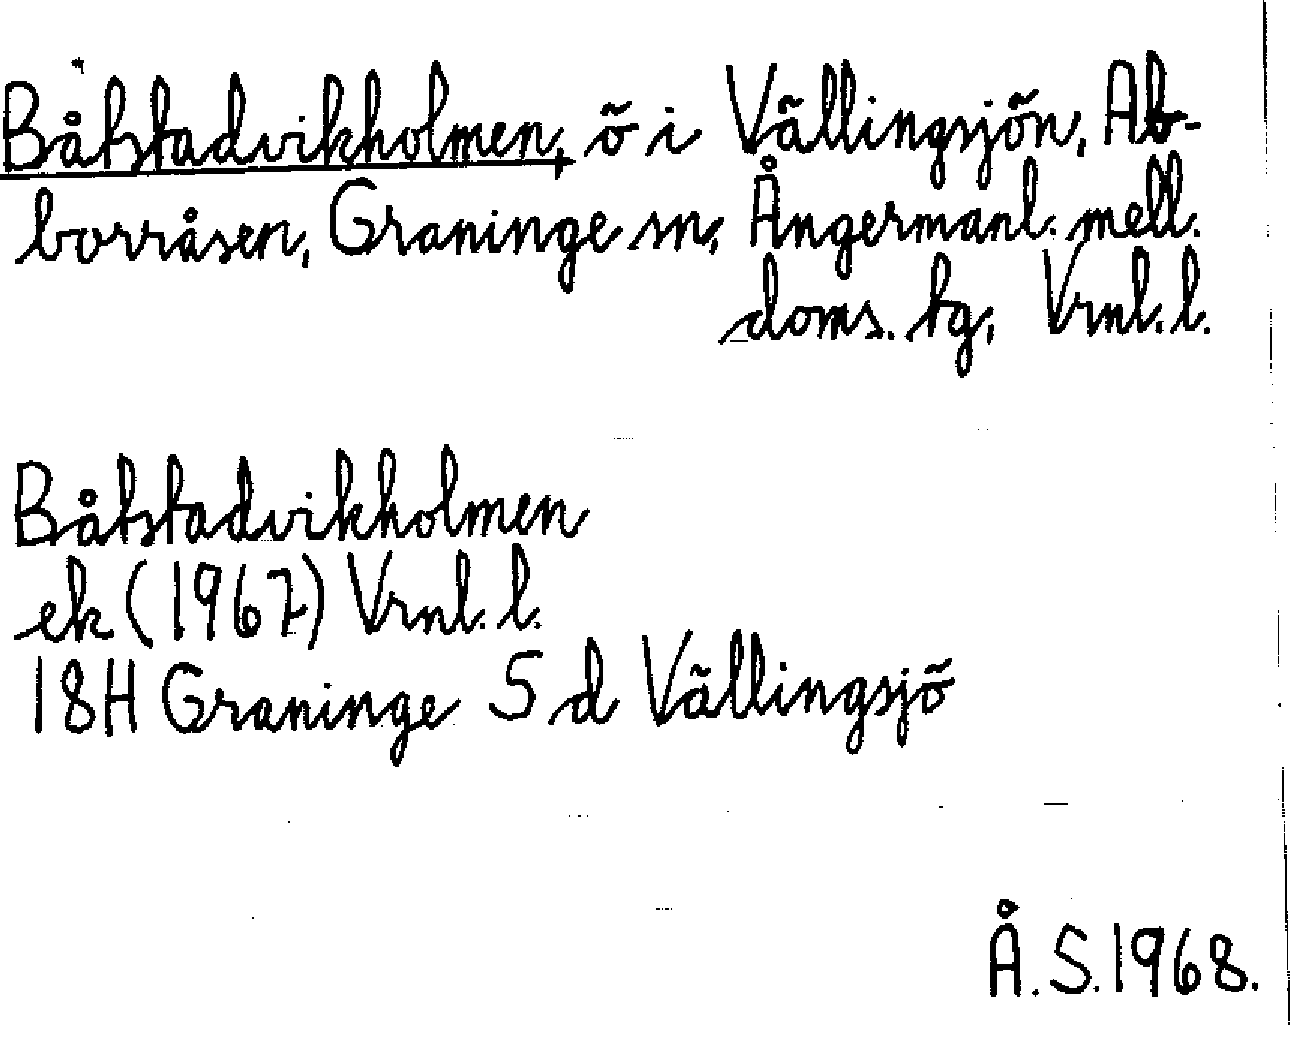 Båtstadvikholmen, ö i Vällingsjön, Ab-
borråsen, Graninge sn, Ångermanl. mell.
doms. tg, Vrnl. l.
Båtstadvikholmen
ek (1967) Vrnl. l.
18H Graninge S d Vällingsjö
Å. S. 1968.